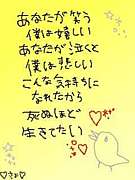 あなたが笑う
僕は嬉しい
あなたが泣くと
僕は悲しい
こんな気持ちに
なれたから
死ぬほど
生きてたい
♡さお♡